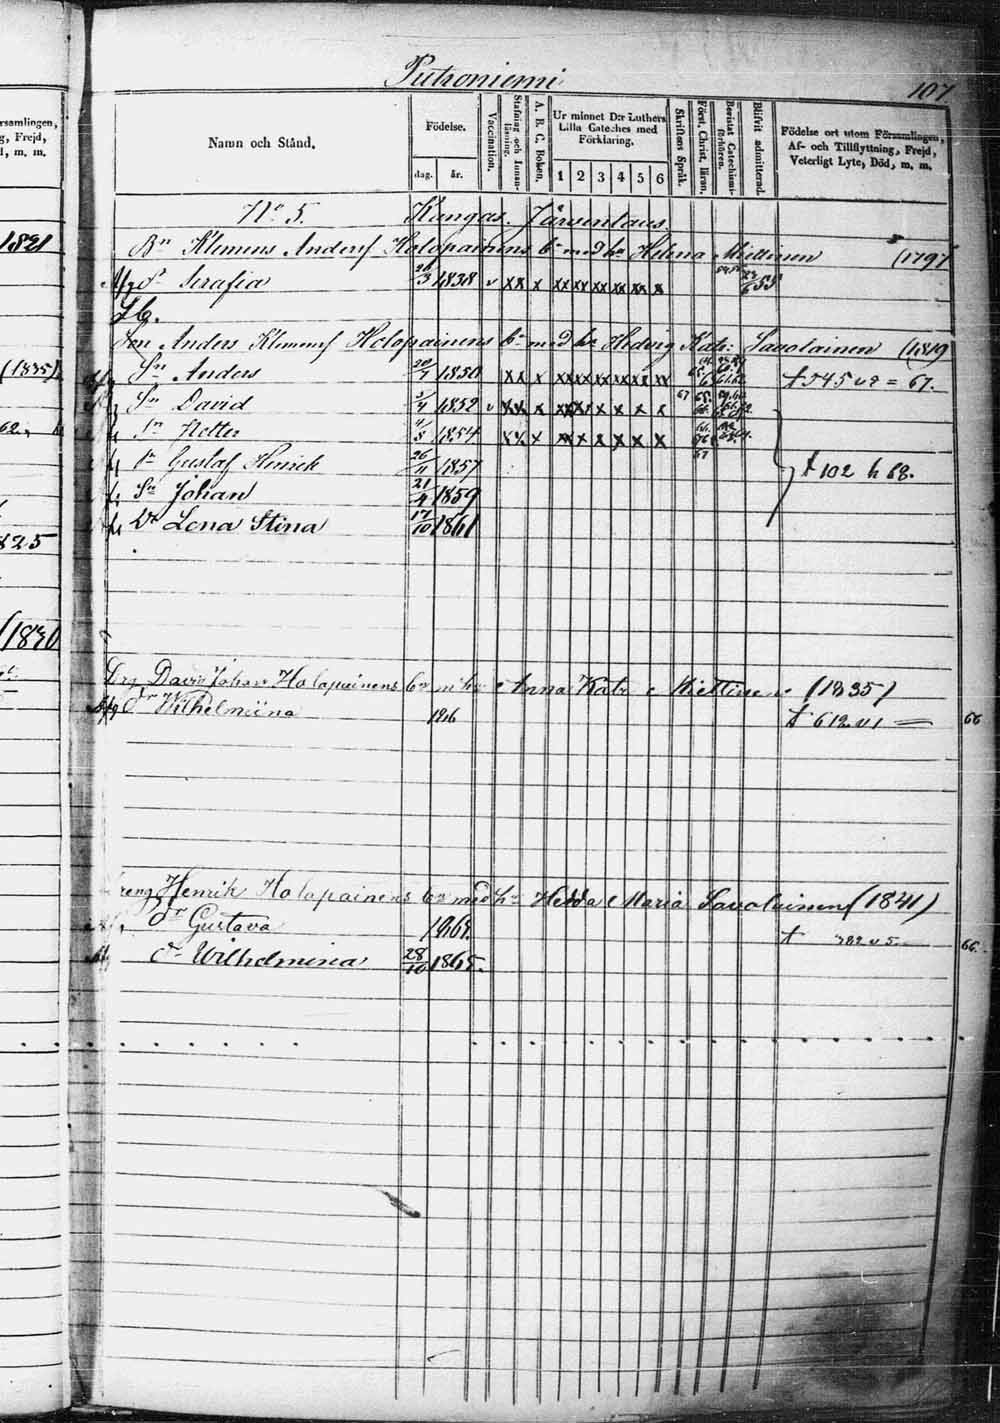 Putroniemi
107.
Namn och Stånd.
Födelse.
dag.
år.
Vaccination.
Stafning och Innan-
läsning.
A. B. C. Boken.
Ur minnet D:r Luthers
Lilla Cateches med
Förklaring.
1 2 3 4 5 6
Skriftens Språk.
Först. Christ. läran.
Bevistat Catechismi-
förhören.
Blifvit admitterad.
Födelse ort utom Församlingen,
Af- och Tillflyttning, Frejd,
Veterligt Lyte, Död, m. m.
rsamlingen,
g, Frejd,
l, m. m.
No 5. Kangas. Järsenlaus
1821
Bn Klemens Andersf Holopainens bn med h. Helena Miettinen (1797
dr Serafia 26/3 1838 v xx x xx xx xx xx xx x
Lb.
Son Anders Klemensf Holopainens bn med hu Hedvig Kat: Savolainen (1819
(1835)
Sn Anders 1850 xx x xx xx xx xx xx xx † 545 v 2 = 67.
Sn David 5/4 1852 v xx x xx xx x x x x
62
Sn Petter 1854 xx x xx x x x x x
Sn Gustaf Henrik 26/11 1857 † 102 h 68.
Sn Johan 21/4 1859
Dr Lena Stina 17/10 1861
825
(1830
Drg David Johan Holopainens bn m hu Anna Kat Miettinen (1835)
dr Wilhelmiina † 612 v 1 — 66
Dreng Henrik Holopainens bn med hu Hedda Maria Savolainen (1841)
dr Gustava † 382 v 5 — 66.
dr Wilhelmina 28/10 1865.